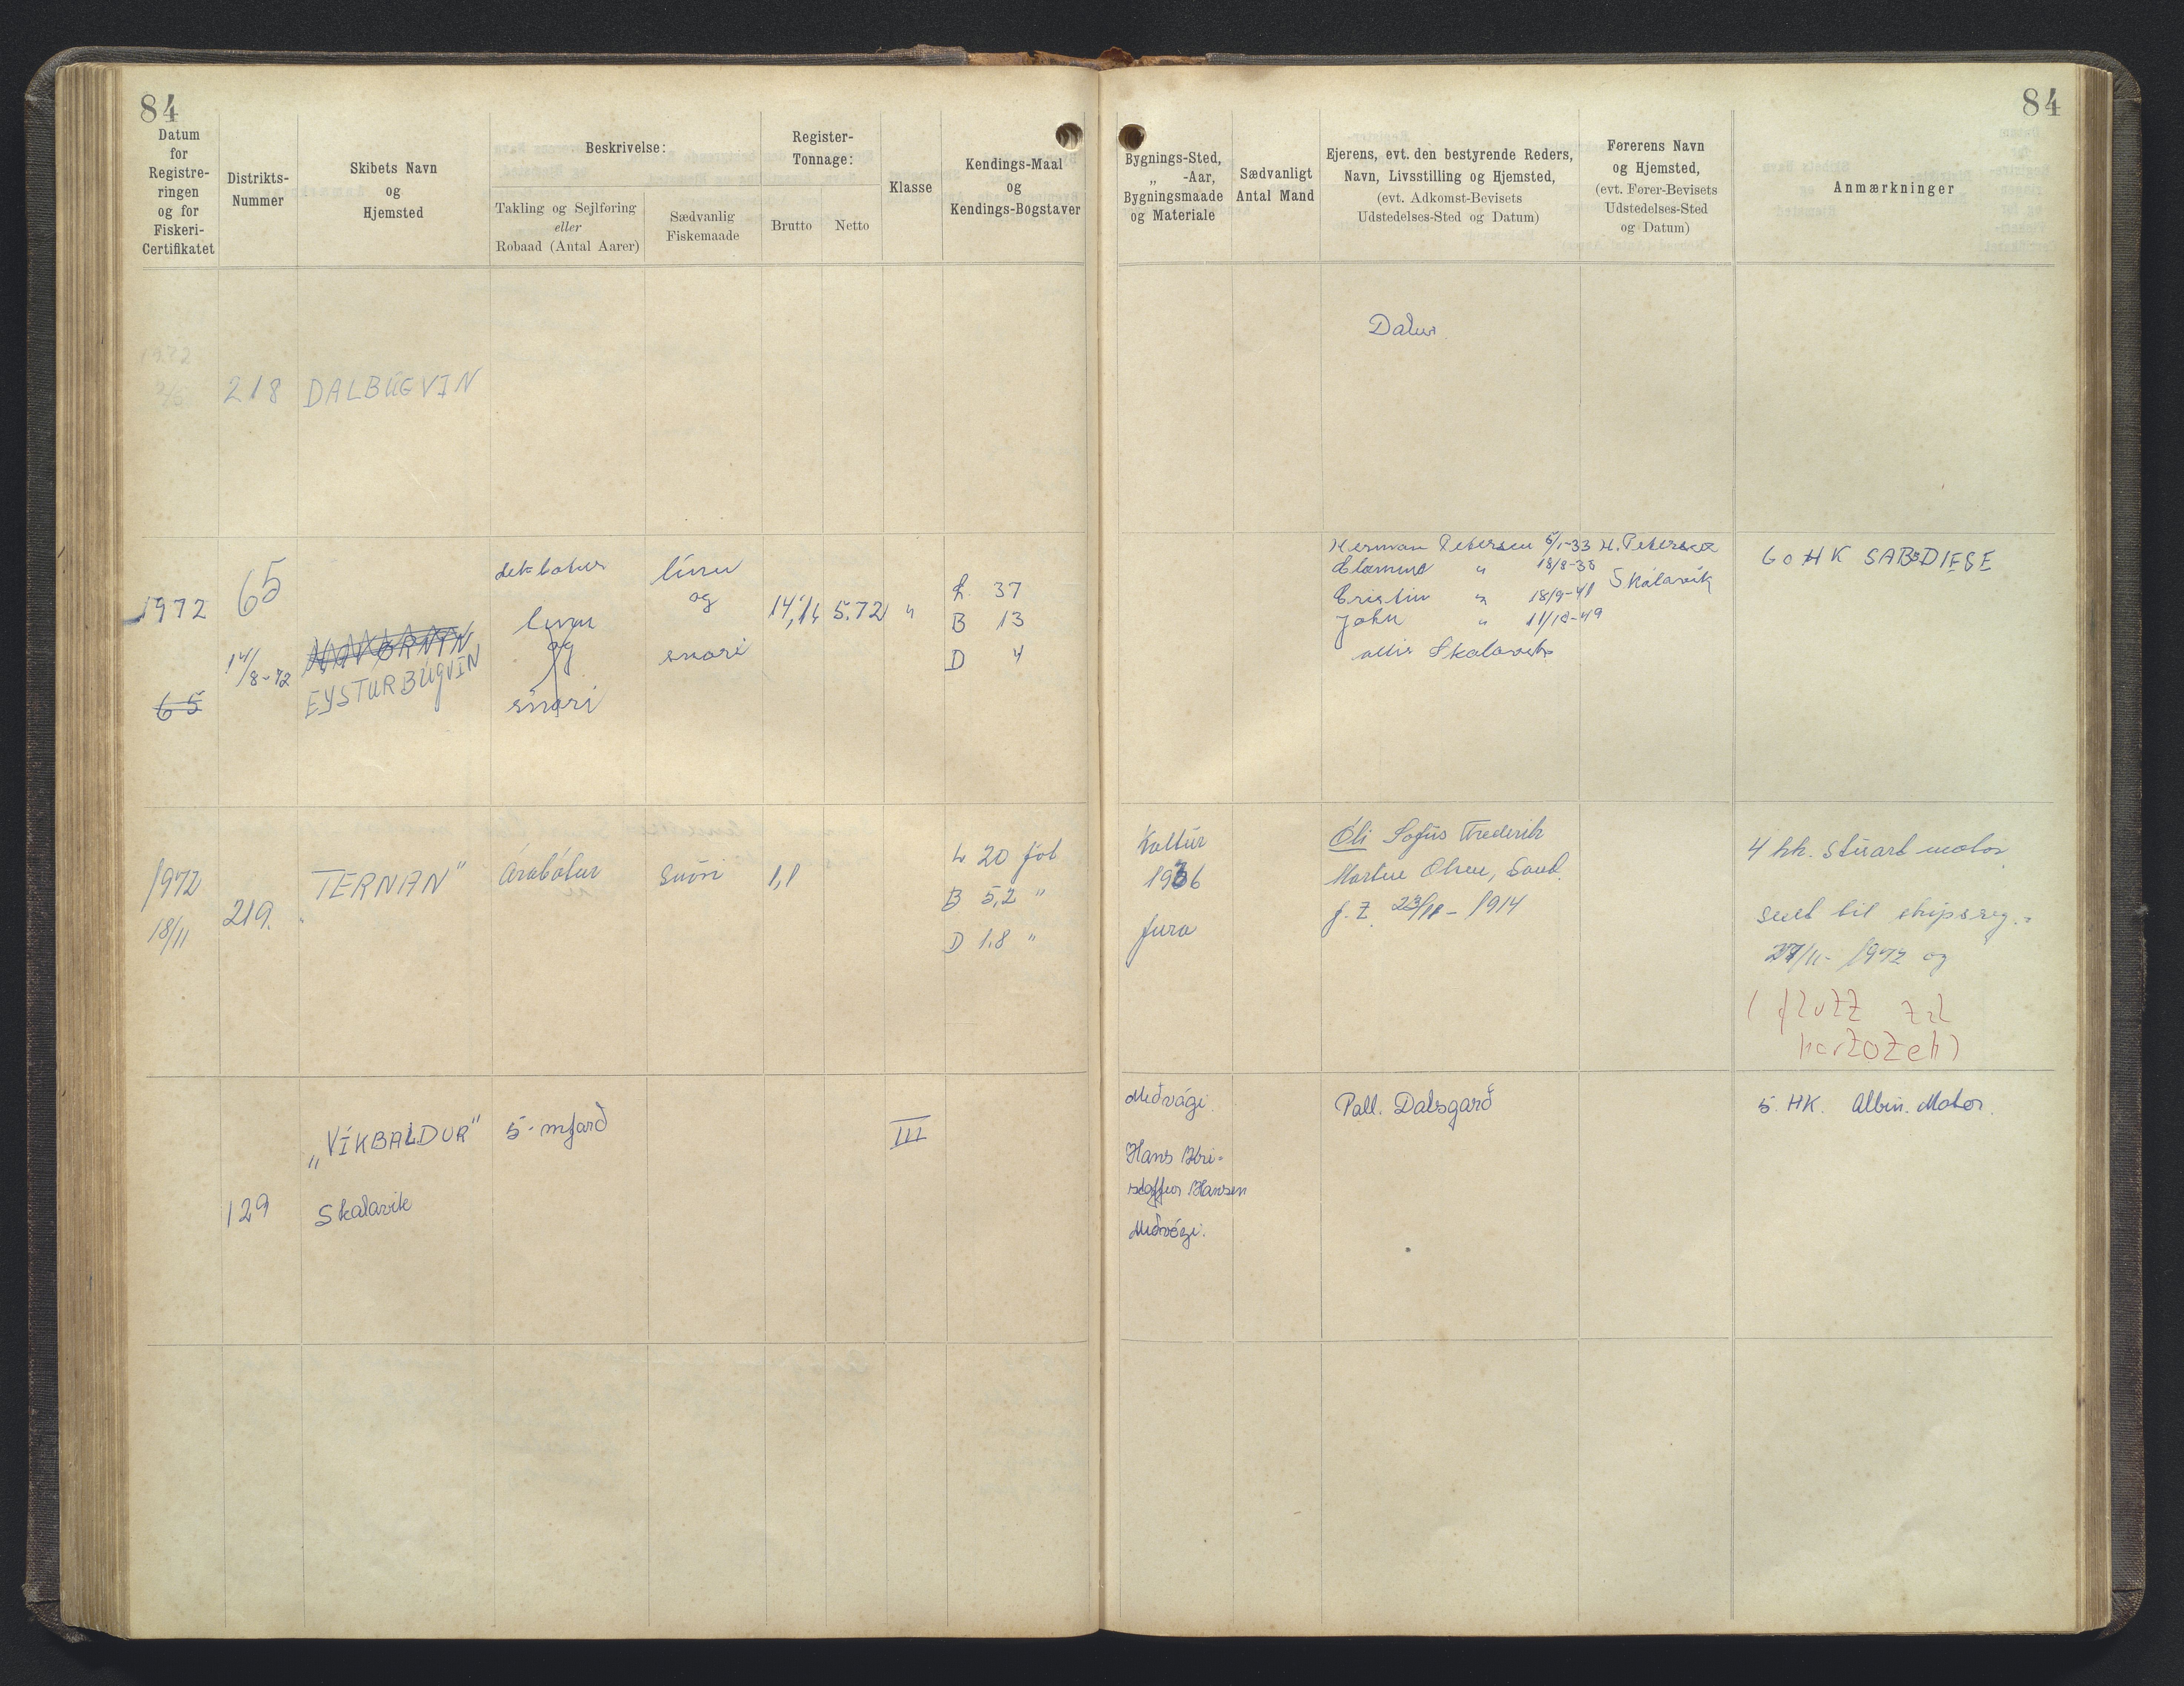 84
Datum
for
Registre-
ringen
og for
Fiskeri-
Certifikatet
Distrikts-
Nummer
Skibets Navn
og
Hjemsted
Beskrivelse:
Takling og Sejlføring
eller
Robaad (Antal Aarer)
Sædvanlig
Fiskemaade
Register-
Tonnage:
Brutto Netto
Klasse
Kendings-Maal
og
Kendings-Bogstaver
84
Bygnings-Sted,
„ -Aar,
Bygningsmaade
og Materiale
Sædvanligt
Antal Mand
Ejerens, evt. den bestyrende Reders,
Navn, Livsstilling og Hjemsted,
(evt. Adkomst-Bevisets
Udstedelses-Sted og Datum)
Førerens Navn
og Hjemsted,
(evt. Fører-Bevisets
Udstedelses-Sted
og Datum)
Anmærkninger
1972
218 DALBÚGVIN
Dalur
1972
65
65
14/8-72
EYSTURBÚGVIN
dekbátur
línu
og
snøri
línu
og
snøri
14,14 5.72 "
L 37
B 13
D 4
Herman Petersen 5/1-33
" 18/8-38
" 18/9-41
John " 11/12-49
H. Petersen
Skálavík
60 HK SABBDIESE
1972
18/11
219.
TERNAN"
Árabátur
Snøri
1,1
L 20 fot
B 5,2 "
D 1,8 "
Koltúr
1936
fura
Óli Sofus Frederik
Martin Olsen, Sand.
f. 23/11 - 1914
4 hk. Stuart motor
sent til skipsreg.=
27/11- 1972 og
(flutt til
kartotek)
129
„VÍKBALDUR"
Skálavík
5-mfarð
III
Miðvági.
Hans Kri=
stoffur Hansen
Miðvági.
Pall. Dalsgarð
5. HK. Albin. Motor.